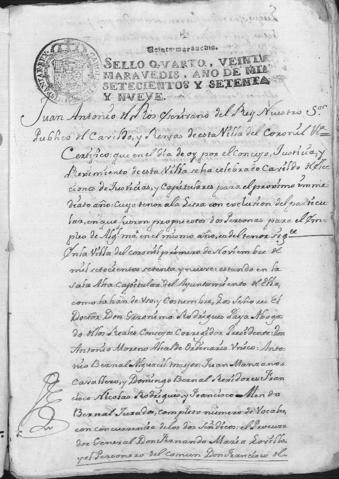 Veinte maravedis.
SELLO QVARTO, VEINTE
MARAVEDIS, AÑO DE MIL
SETECIENTOS Y SETENTA
Y NUEVE.
Juan Antonio de los Escrivano del Rey Nuestro Sor
Publico del Cavildo, y Rentas de esta Villa del Coronil
Certifico: que en el dia de oy por el Concejo, Justicia, y
Regimiento de esta Villa se ha celebrado Cavildo de Elec
ciones de Justicias, y Capitulares para el proximo inme
diato año: Cuyo tenor a la letra con exclusion del particu
lar, en que fueron propuestos dos Personas para el Em
pleo de Algl. mr en el mismo año, es del tenor sigte
En la Villa del coronil primero de Noviembre de
mil setecientos setenta y nueve: estando en la
sala Alta Capitular del Ayuntamiento de ella,
como lo han de Uso y Costumbre, los Señores el
Doctor Don Geronimo Rodriguez Paya Aboga
do de los Reales Consejos Corregidor Presidente: Don
Antonio Moreno Alcalde Ordinario Unico: Anto
nio Bernal Alguacil mayor: Juan Manzano
Cavallero, y Domingo Bernal Rexidores: Fran
cisco Nicolas Rodriguez, y Francisco Mendo
Bernal Jurados, completo numero de Vocales,
con concurrencia de los dos Sindicos, el Procura
dor General Don Fernando Maria
y el Personero del comun Don Francisco de